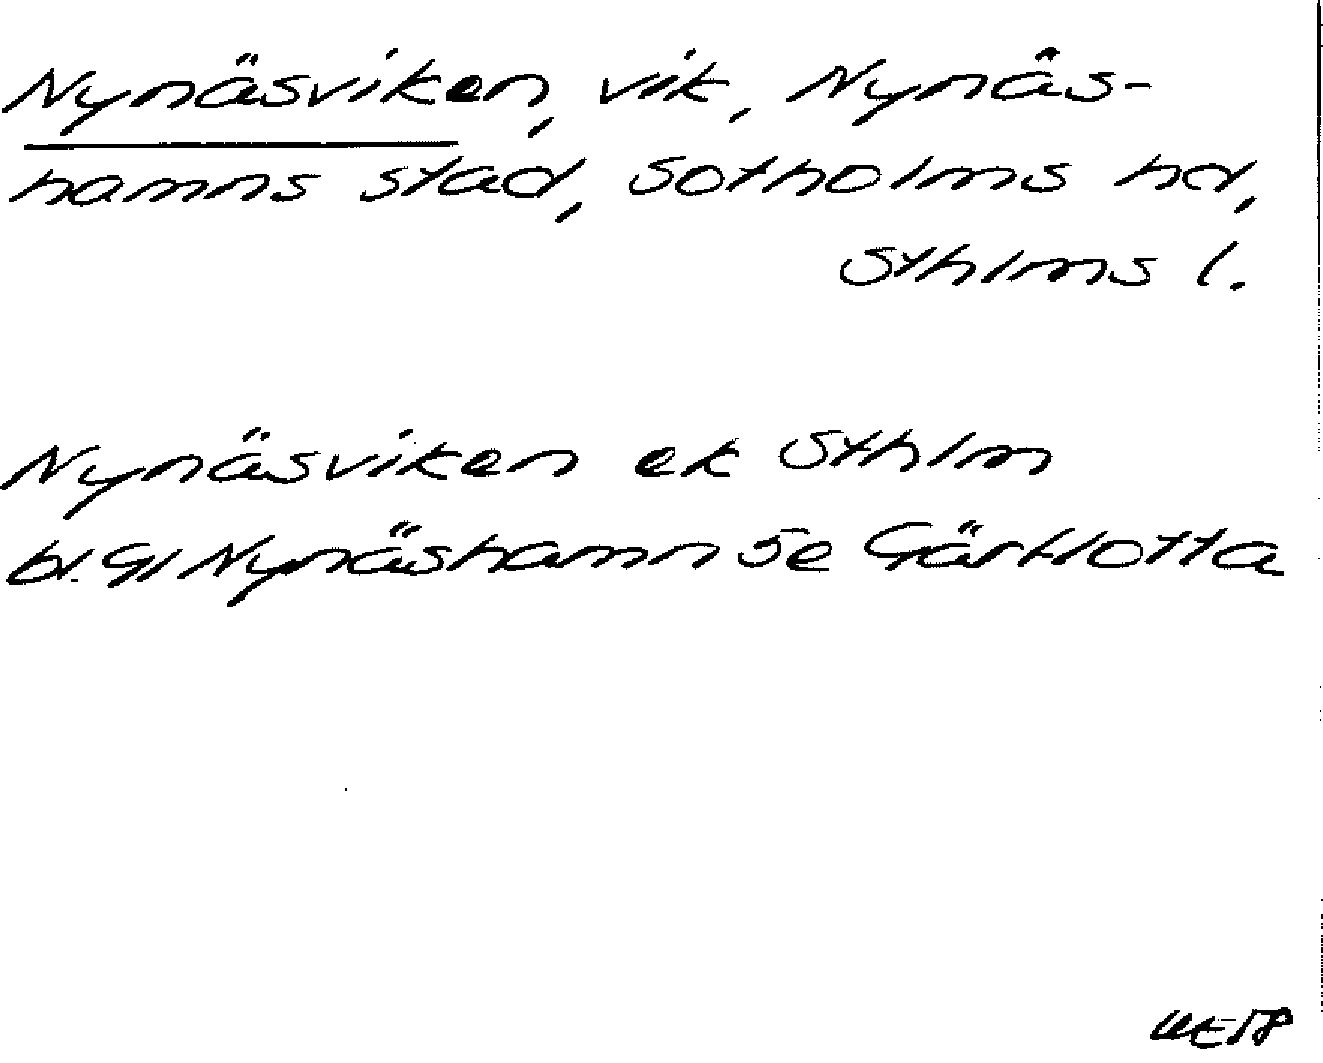 Nynäsviken, vik, Nynäs-
hamns stad, Sotholms hd,
Sthlms l.
Nynäsviken ek Sthlm
bl. 91 Nynäshamn 5e